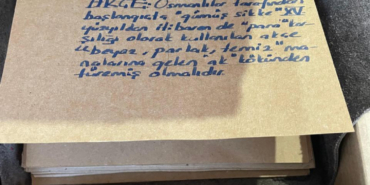 AKÇE: Osmanlılar tarafından
başlangıçta "gümüş sikke" XV.
yüzyıldan itibaren de "para" kar-
şılığı olarak kullanılan akçe
"beyaz, parlak, temiz" ma-
nalarına gelen "ak" kökünden
türemiş olmalıdır.